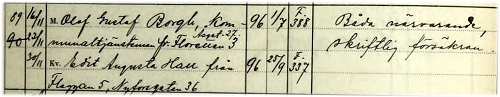 09 16/11 M. Olof Gustaf Borgh, kom- 96 1/7 F. 388 Båda närvarande,
90 23/11 munaltjänsteman fr. Florallen 3 Sept. 27. skriftlig försäkran.
30/11 Kv. Edit Augusta Hall från 96 25/9 F. 337
Flaggan 5, Nyforsgatan 36